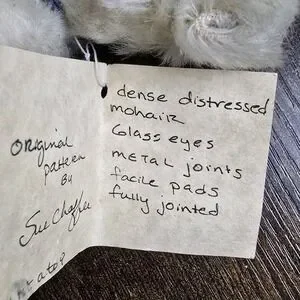 original
pattern
By
Sue
dense distressed
mohair
Glass eyes
metal joints
facile pads
fully jointed